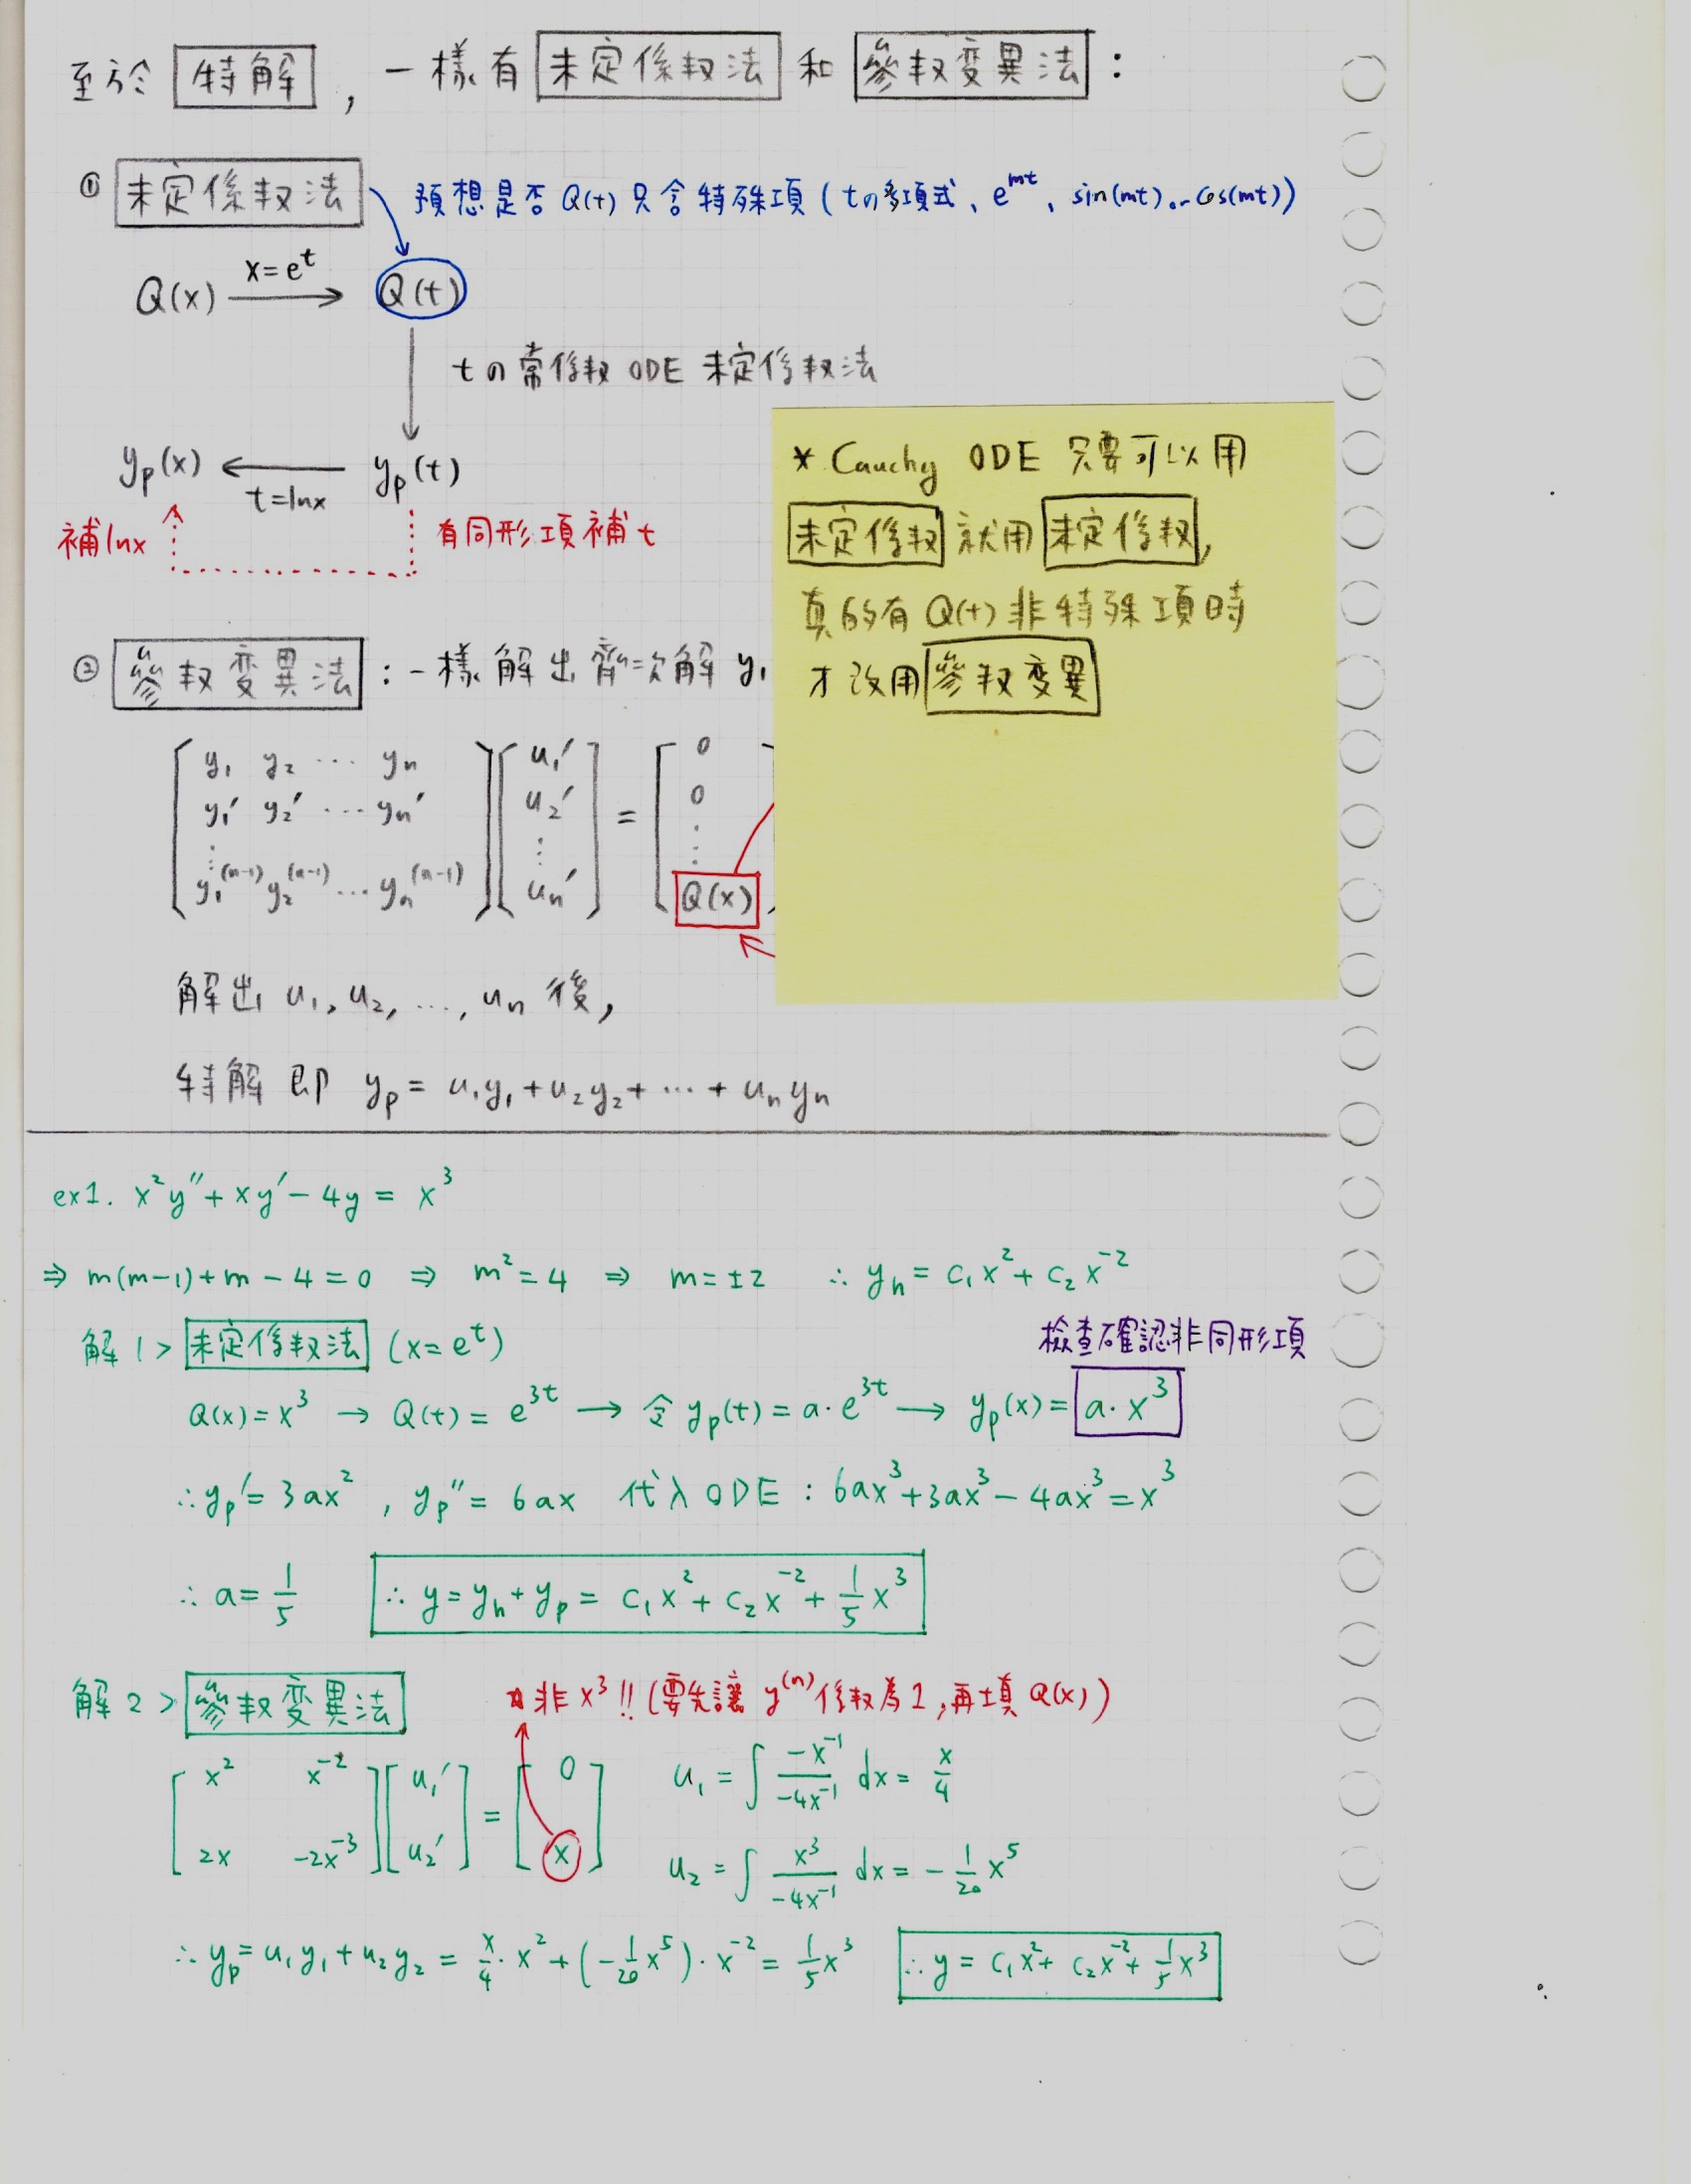 至於 特解 , 一樣有 未定係數法 和 參數變異法 :
① 未定係數法 預想是否 Q(t) 只含特殊項 ( tの多項式、e^{mt}、sin(mt) or cos(mt) )
Q(x) x=e^t → Q(t)
tの常係數 ODE 未定係數法
y_p(x) ← t=lnx y_p(t)
補lnx 有同形項補t
* Cauchy ODE 只要可以用
未定係數 就用 未定係數,
真的有 Q(t) 非特殊項時
才改用 參數變異
② 參數變異法 : 一樣解出齊次解 y₁
[ y₁ y₂ ⋯ yₙ ] [ u₁′ ] = [ 0
y₁′ y₂′ ⋯ yₙ′ u₂′ 0
⋮ ⋮ ⋮
y₁^{(n-1)} y₂^{(n-1)} ⋯ yₙ^{(n-1)} uₙ′ Q(x)
解出 u₁, u₂, …, uₙ 後,
特解即 y_p = u₁y₁ + u₂y₂ + ⋯ + uₙyₙ
ex1. x²y″ + xy′ − 4y = x³
⇒ m(m−1) + m − 4 = 0 ⇒ m² = 4 ⇒ m = ±2 ∴ y_h = c₁x² + c₂x⁻²
解1> 未定係數法 (x = e^t) 檢查確認非同形項
Q(x) = x³ → Q(t) = e^{3t} → 令 y_p(t) = a·e^{3t} → y_p(x) = a·x³
∴ y_p′ = 3ax² , y_p″ = 6ax 代入 ODE : 6ax³ + 3ax³ − 4ax³ = x³
∴ a = 1/5 ∴ y = y_h + y_p = c₁x² + c₂x⁻² + 1/5 x³
解2> 參數變異法 非 x³ !! (要先讓 y^{(n)} 係數為1, 再填 Q(x))
[ x² x⁻² ] [ u₁′ ] = [ 0 ] u₁ = ∫ −x⁻¹/−4x⁻¹ dx = x/4
2x −2x⁻³ u₂′ x u₂ = ∫ x³/−4x⁻¹ dx = − 1/20 x⁵
∴ y_p = u₁y₁ + u₂y₂ = x/4 · x² + (−1/20 x⁵) · x⁻² = 1/5 x³ ∴ y = c₁x² + c₂x⁻² + 1/5 x³